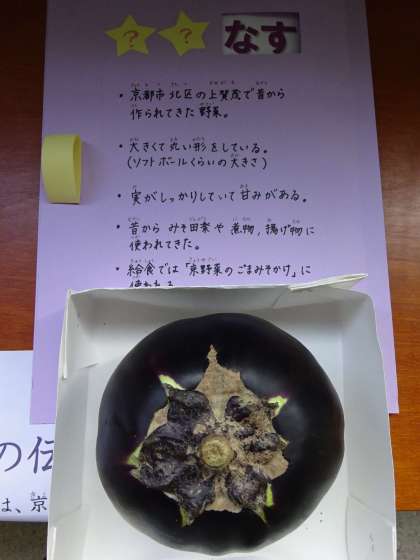 ? ? なす
・京都市北区の上賀茂で昔から
作られてきた野菜。
・大きくて丸い形をしている。
(ソフトボールくらいの大きさ)
・実がしっかりしていて甘みがある。
・昔からみそ田楽や煮物,揚げ物に
使われてきた。
・給食では「京野菜のごまみそかけ」に
使われる
の伝
は、京